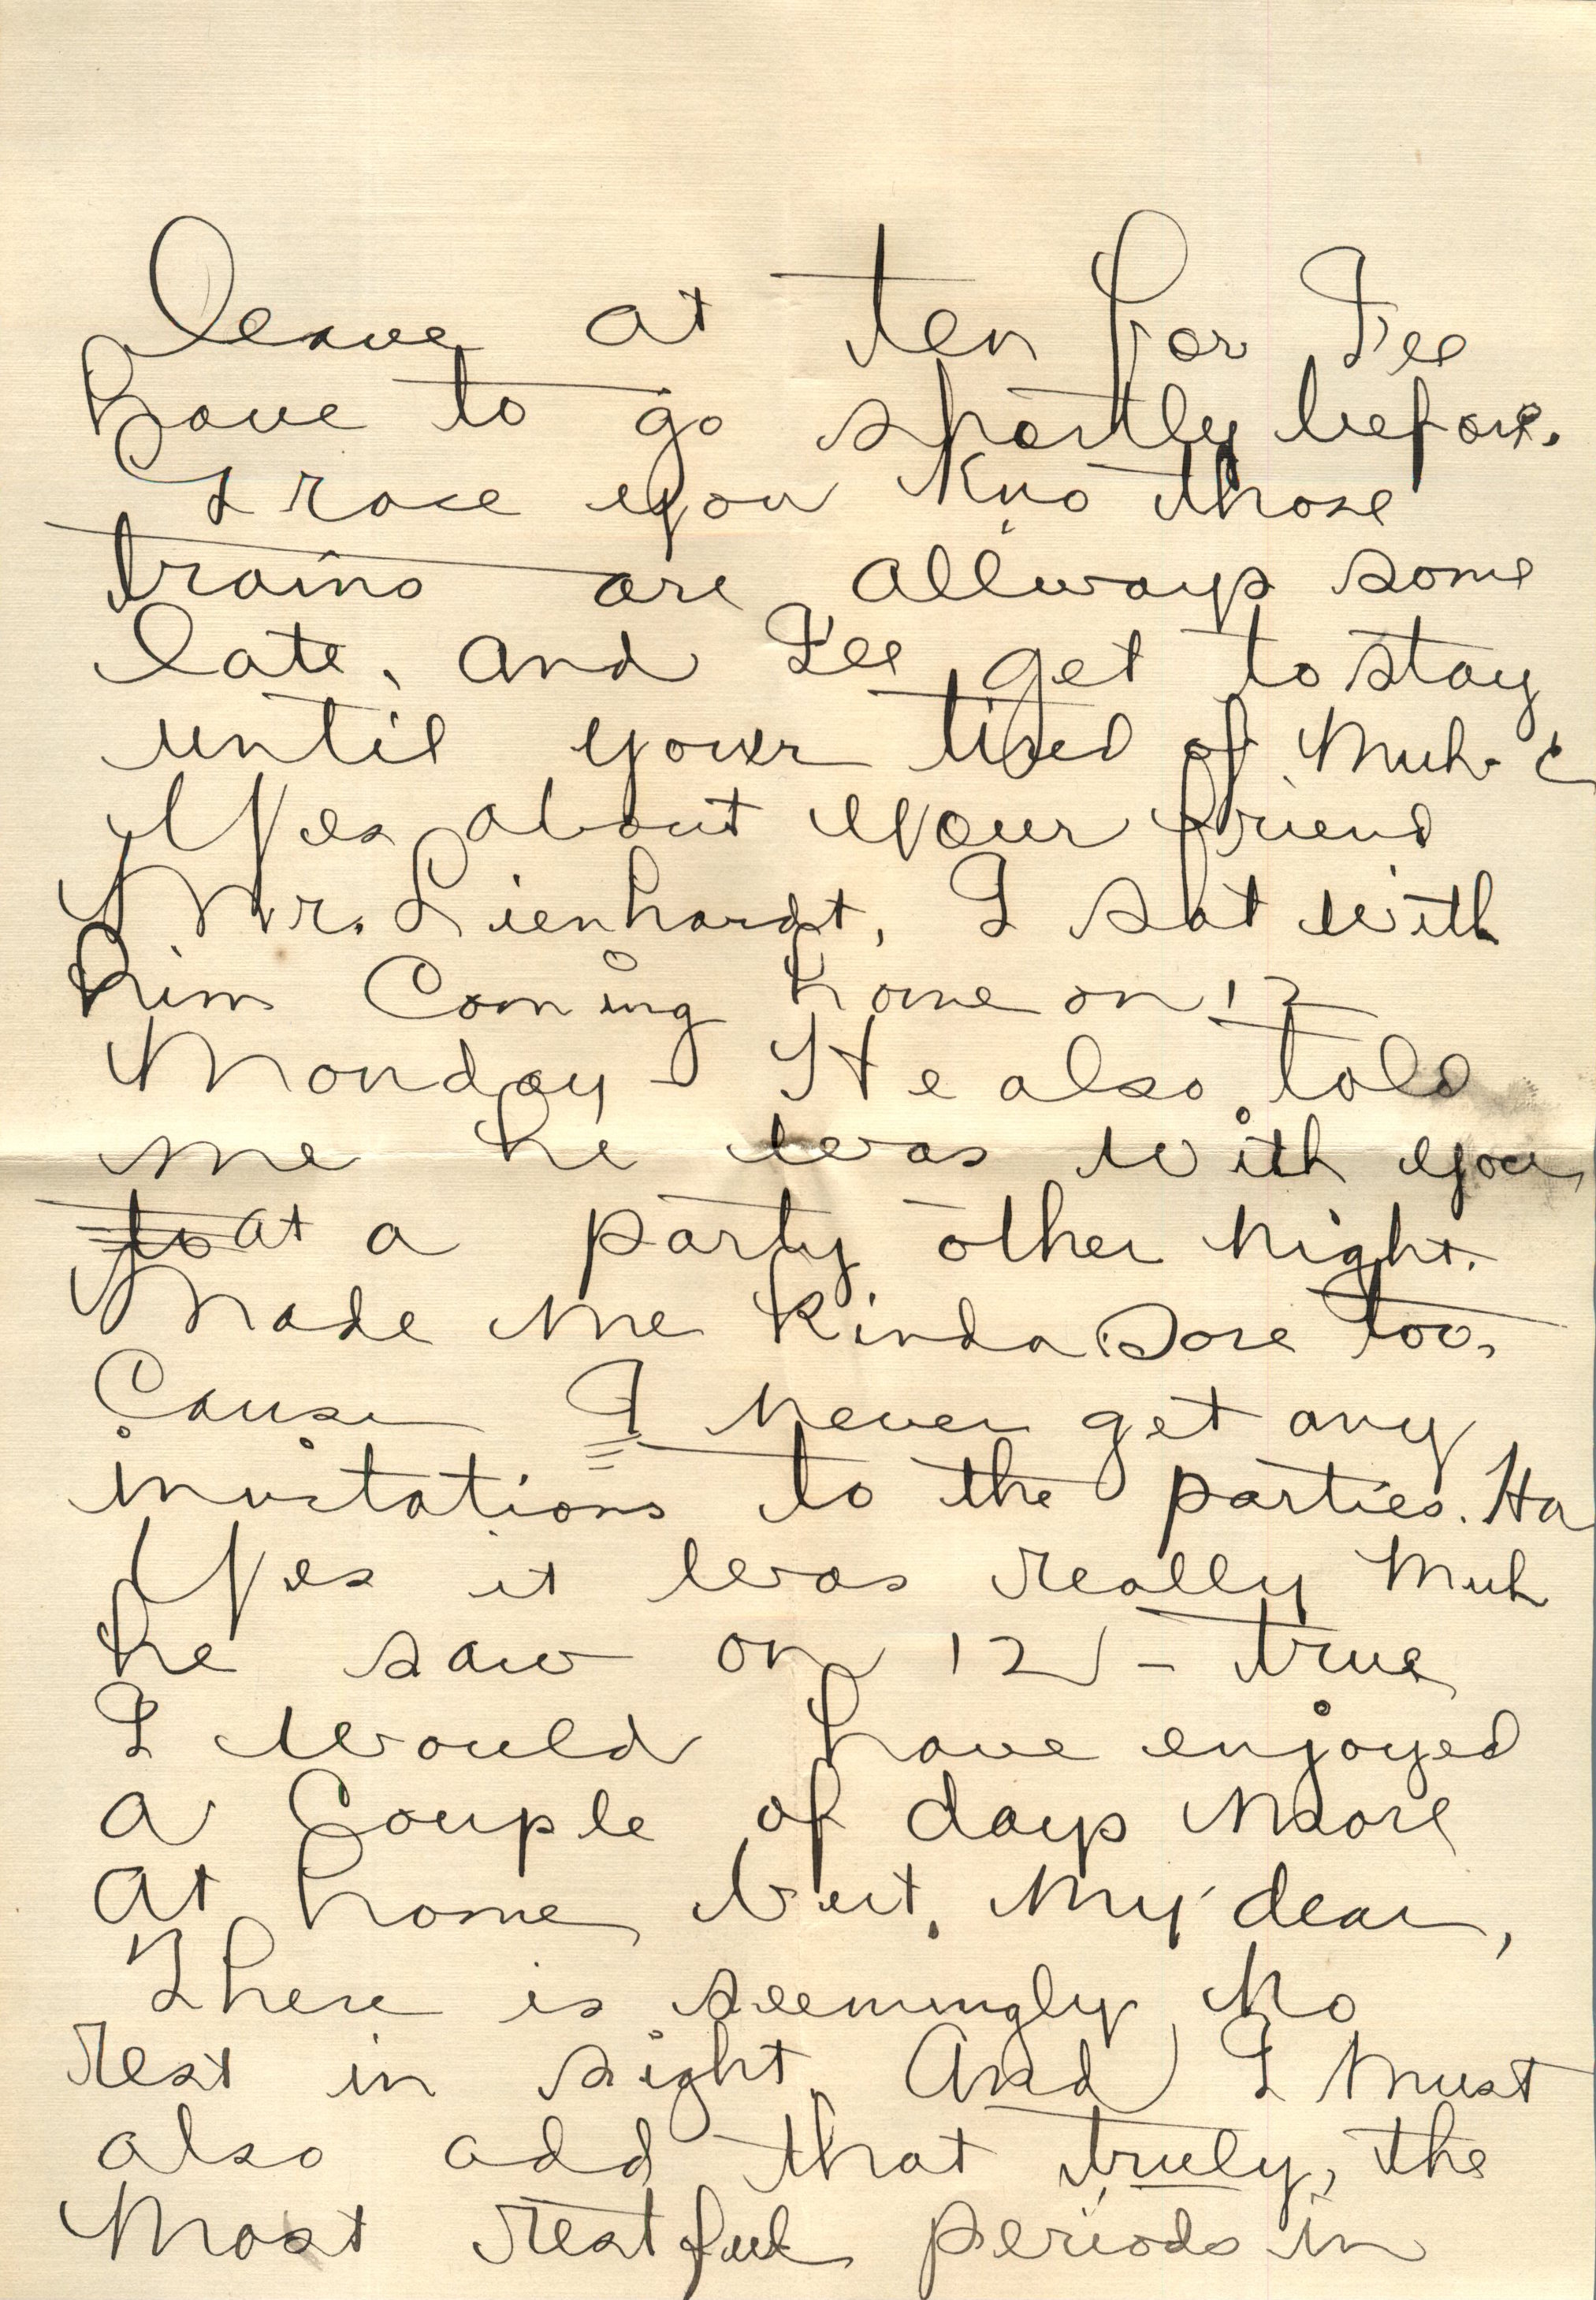 leave at ten for I'll
have to go shortly before.
Grace you kno those
trains are allways some
late, and I'll get to stay
until your tired of Muh.
Yes about your friend
Mr. Lienhardt, I sat with
him coming home on 12
Monday - He also told
me he was with you
to at a party other night.
Made me kinda sore too,
Cause I never get any
invitations to the parties. Ha
Yes it was really Muh
he saw on 12 - true
I would have enjoyed
a couple of days more
at home but, my dear,
There is seemingly no
rest in sight, And I must
also add that truly, the
most restful periods in